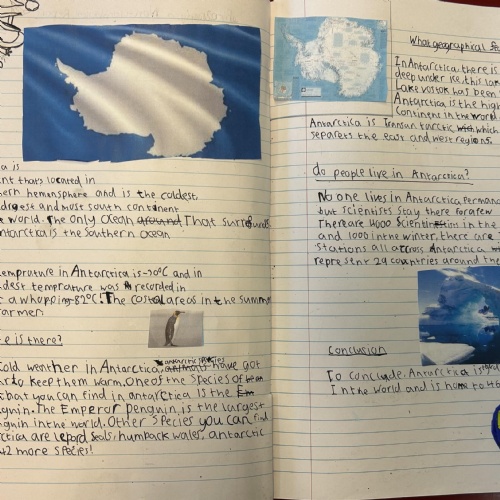 a is
nt that's located in
ern hemosphere and is the coldest,
dryest and most south continent
e world. The only ocean around That surrounds
ntarctica is the Southern ocean
temprature in Antarctica is -70°C and in
dest temprature was recorded in
t a whopping -82°C. The costal areas in the summer
armer.
e is there?
cold weather in Antarctica, antarctic species have got
to keep them warm. One of the species of
that you can find in antarctica is the Em
guin. The Emperor penguin is the largest
nguin in the world. Other species you can find
rctica are lepord seals, humpback wales, antarctic
42 more species!
What geographical
In Antarctica there is
deep under ice, this lake
Lake vostok has been
Antarctica is the high
continent in the world
Antarctica is Transantarctic which
separets the east and west regions.
do people live in Antarctica?
No one lives in Antarctica permane
but scientists stay there for a few
There are 4000 scientists in the
and 1000 in the winter, there are
stations all across Antarctica
represent 29 countries around the
Conclusion
To conclude, Antarctica is
In the world and is home to